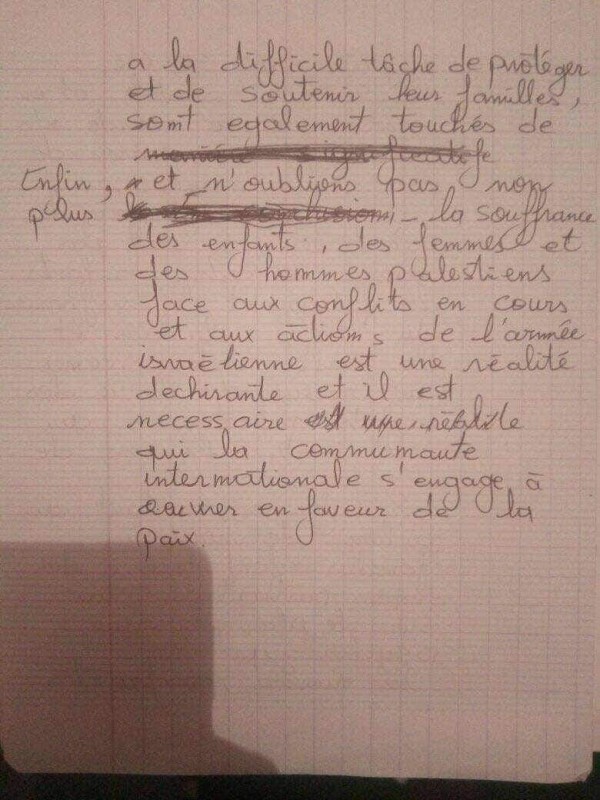 a la difficile tâche de protéger
et de soutenir leur familles,
sont egalement touchés de
manière significatife
Enfin, et n'oublions pas non
plus la souffrance
des enfants, des femmes et
des hommes palestiens
face aux conflits en cours
et aux actions de l'armée
israëlienne est une réalité
dechirante et il est
necessaire est une réalité
qui la communaute
internationale s'engage à
œuvrer en faveur de la
paix.